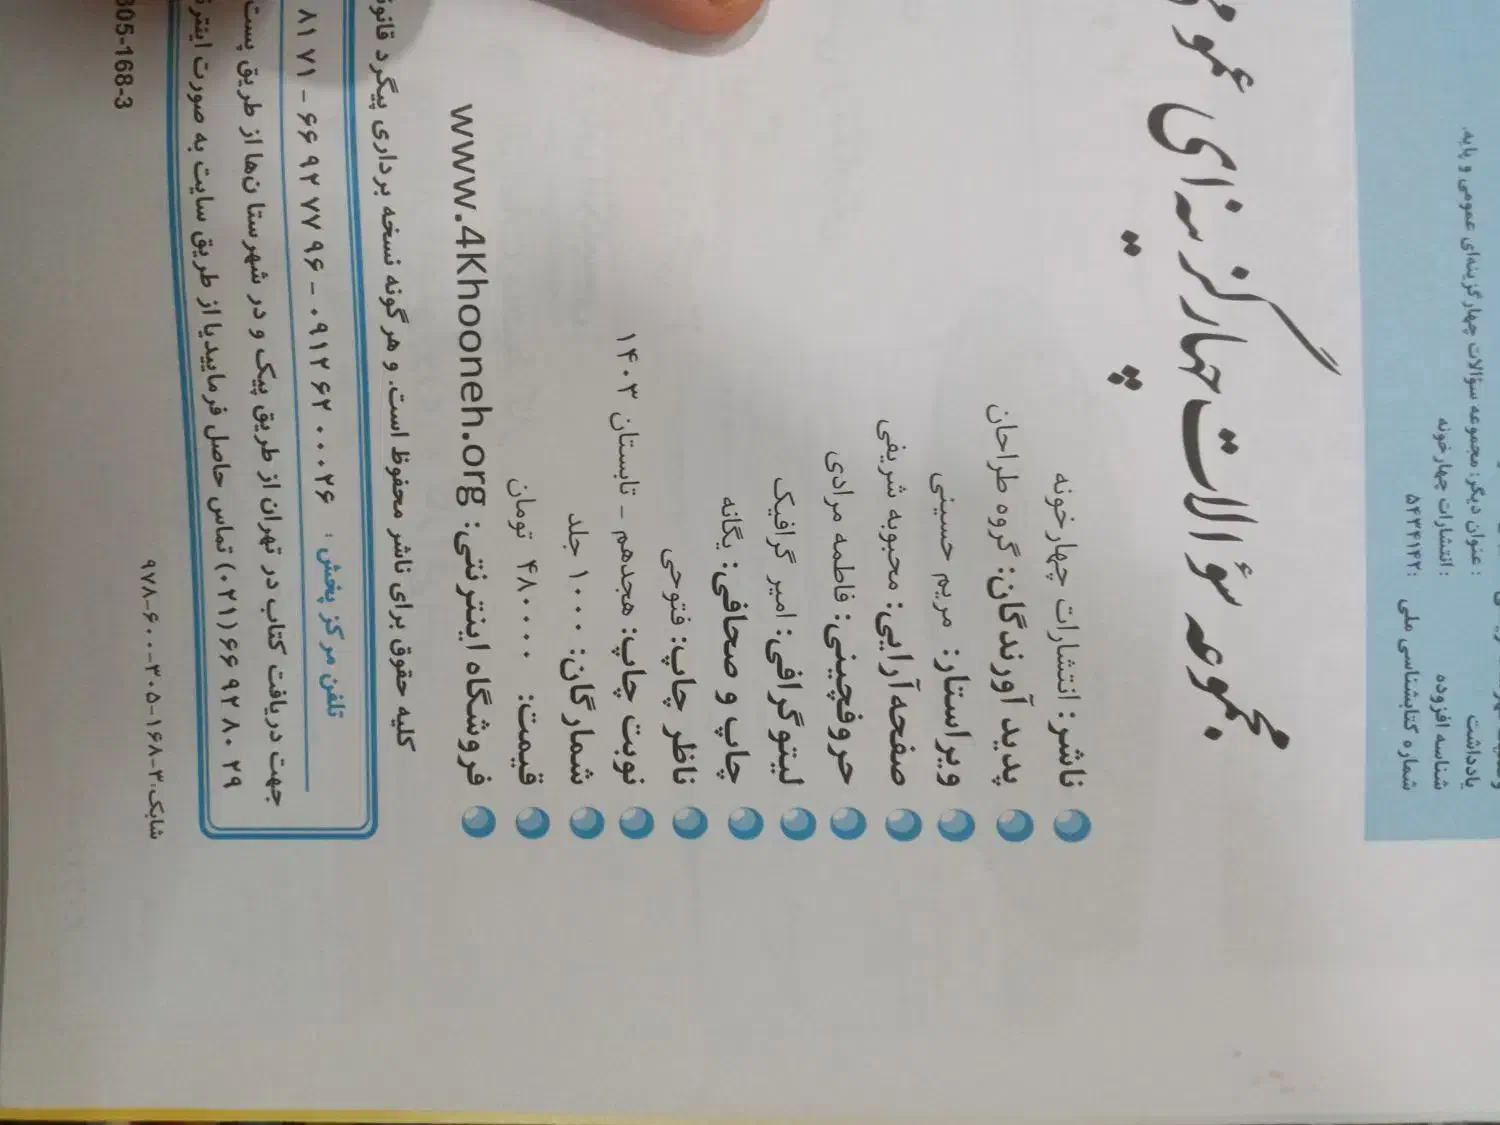 : عنوان دیگر: مجموعه سؤالات چهارگزینه‌ای عمومی و پایه.
یادداشت
شناسه افزوده : انتشارات چهارخونه
شماره کتابشناسی ملی : ۵۴۳۴۱۴۲
مجموعه سؤالات چهارگزینه‌ای
ناشر: انتشارات چهارخونه
پدیدآورندگان: گروه طراحان
ویراستار: مریم حسینی
صفحه‌آرایی: محبوبه شریفی
حروفچینی: فاطمه مرادی
لیتوگرافی: امیر گرافیک
چاپ و صحافی: یگانه
ناظر چاپ: فتوحی
نوبت چاپ: هجدهم - تابستان ۱۴۰۳
شمارگان: ۱۰۰۰ جلد
قیمت: ۴۸۰۰۰۰ تومان
فروشگاه اینترنتی: www.4Khooneh.org
کلیه حقوق برای ناشر محفوظ است. و هر گونه نسخه برداری پیگرد
تلفن مرکز پخش : ۰۹۱۲۶۲۰۰۰۲۶ - ۶۶۹۲۷۷۹۶ - ۸۱۷۱
جهت دریافت کتاب در تهران از طریق پیک و در شهرستان‌ها از طریق پست
۶۶۹۲۸۰۲۹ (۰۲۱) تماس حاصل فرمایید یا از طریق سایت به صورت
شابک: ۹۷۸-۶۰۰-۳۰۵-۱۶۸-۳
305-168-3